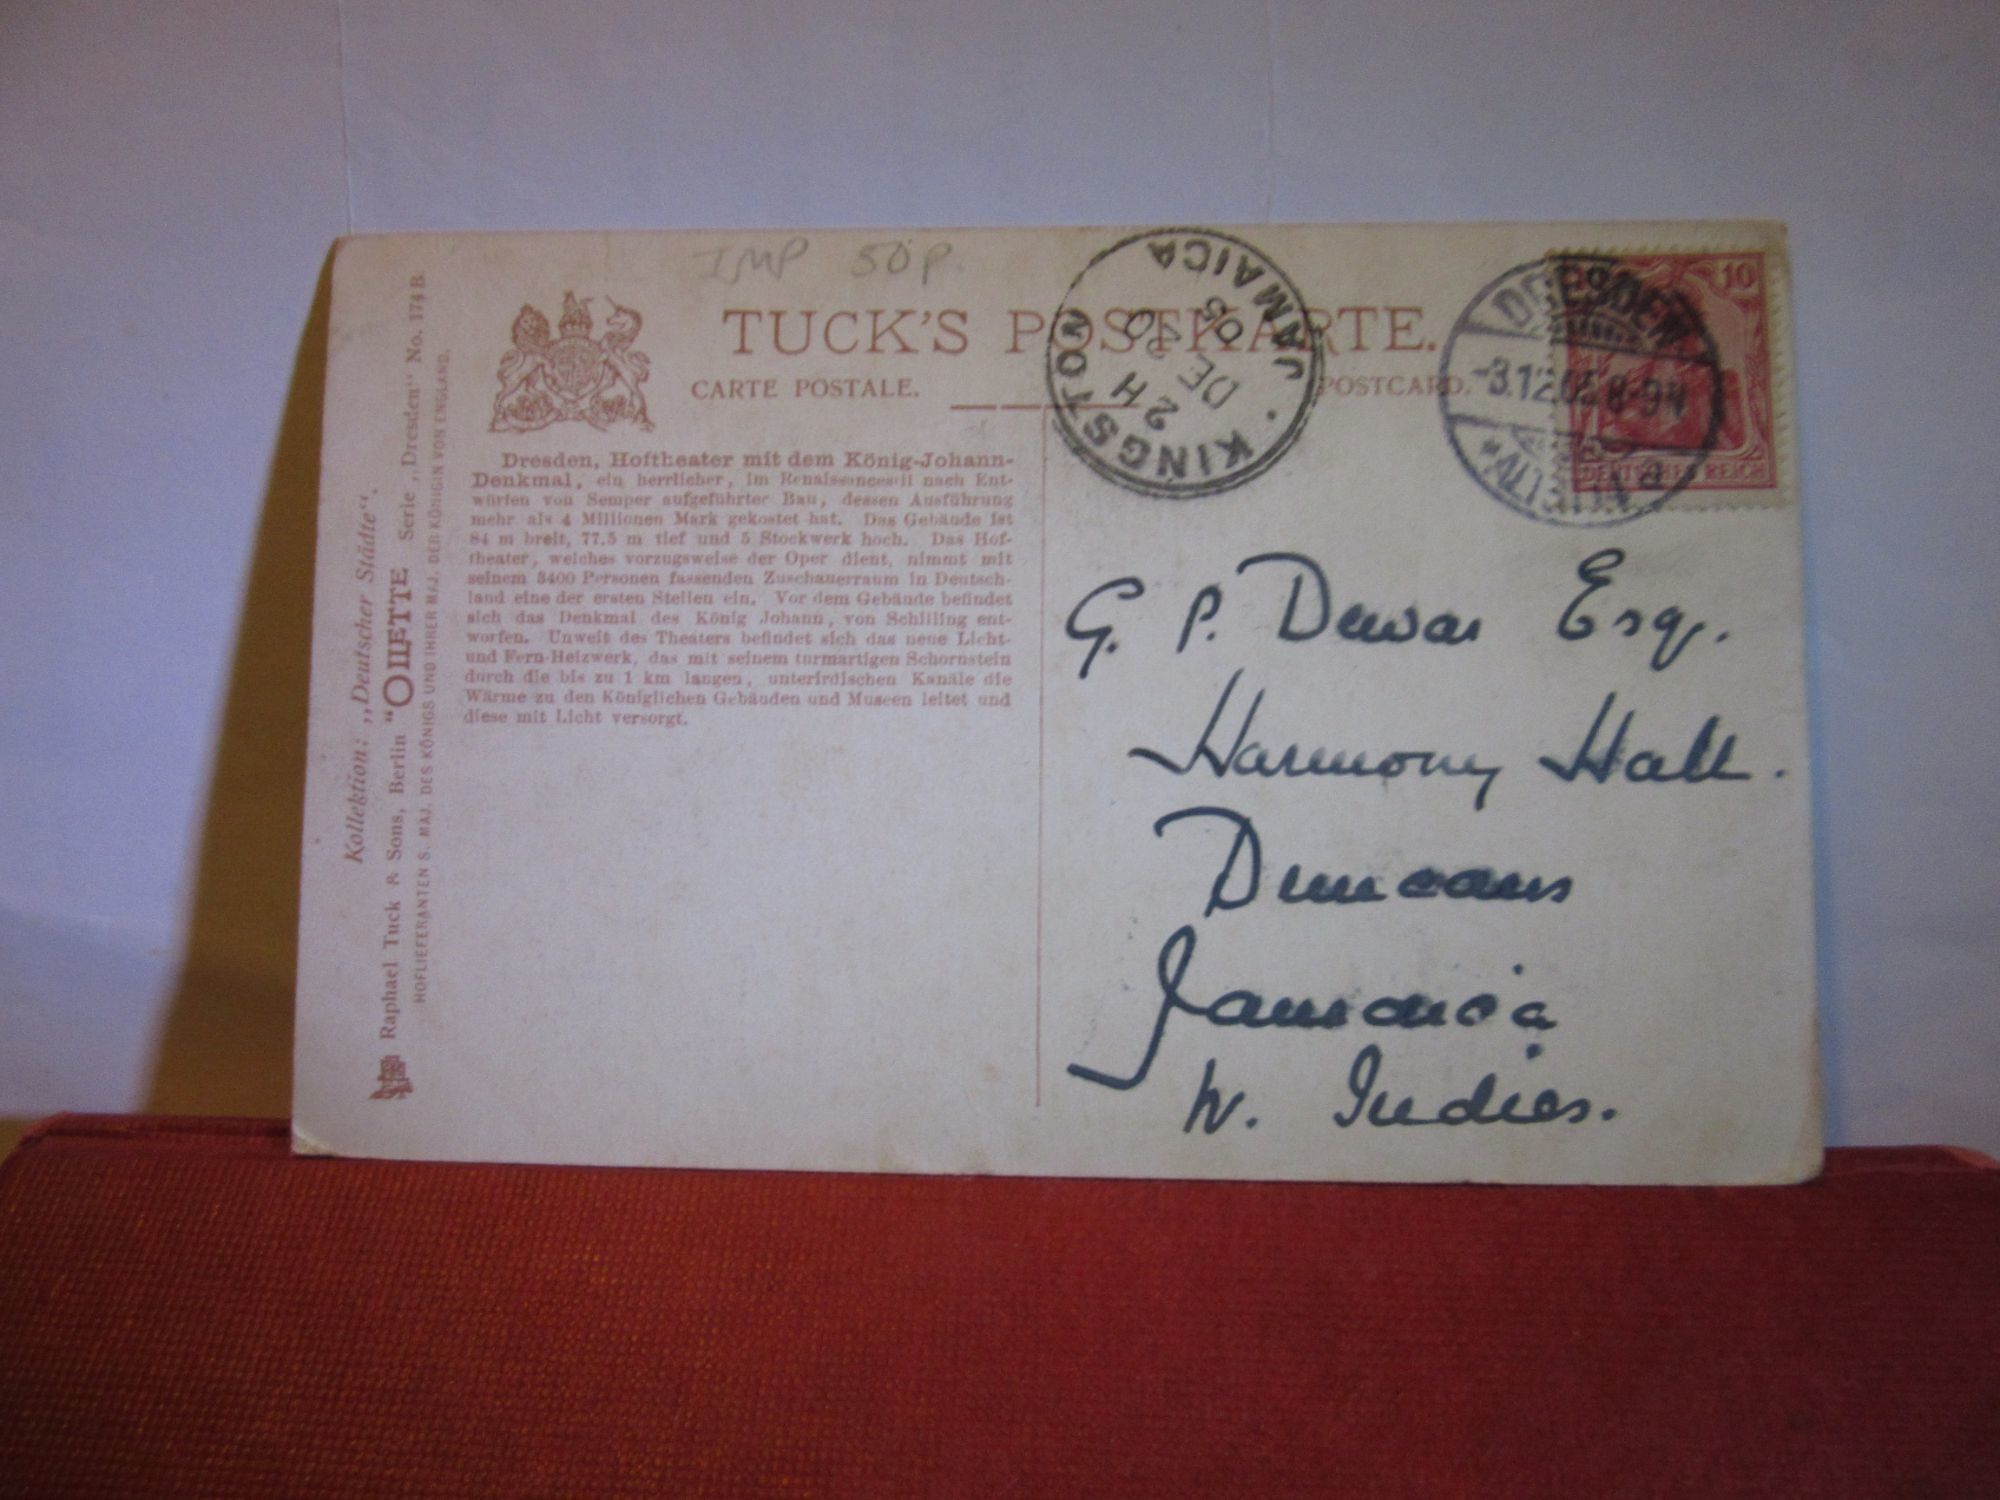 IMP 50P
TUCK'S POSTKARTE.
CARTE POSTALE.
POSTCARD.
KINGSTON · JAMAICA
2H
DE 20
05
DRESDEN
-3.12.05.8-9N
10
DEUTSCHES REICH
Kollektion: „Deutscher Städte“.
Raphael Tuck & Sons, Berlin "OILETTE Serie „Dresden“ No. 174 B.
HOFLIEFERANTEN S. MAJ. DES KÖNIGS UND IHRER MAJ. DER KÖNIGIN VON ENGLAND.
Dresden, Hoftheater mit dem König-Johann-
Denkmal, ein herrlicher, im Renaissancestil nach Ent-
würfen von Semper aufgeführter Bau, dessen Ausführung
mehr als 4 Millionen Mark gekostet hat. Das Gebäude ist
84 m breit, 77,5 m tief und 5 Stockwerk hoch. Das Hof-
theater, welches vorzugsweise der Oper dient, nimmt mit
seinem 3400 Personen fassenden Zuschauerraum in Deutsch-
land eine der ersten Stellen ein. Vor dem Gebäude befindet
sich das Denkmal des König Johann, von Schilling ent-
worfen. Unweit des Theaters befindet sich das neue Licht-
und Fern-Heizwerk, das mit seinem turmartigen Schornstein
durch die bis zu 1 km langen, unterirdischen Kanäle die
Wärme zu den Königlichen Gebäuden und Museen leitet und
diese mit Licht versorgt.
G. P. Dewar Esq.
Harmony Hall.
Duncans
Jamaica
W. Indies.